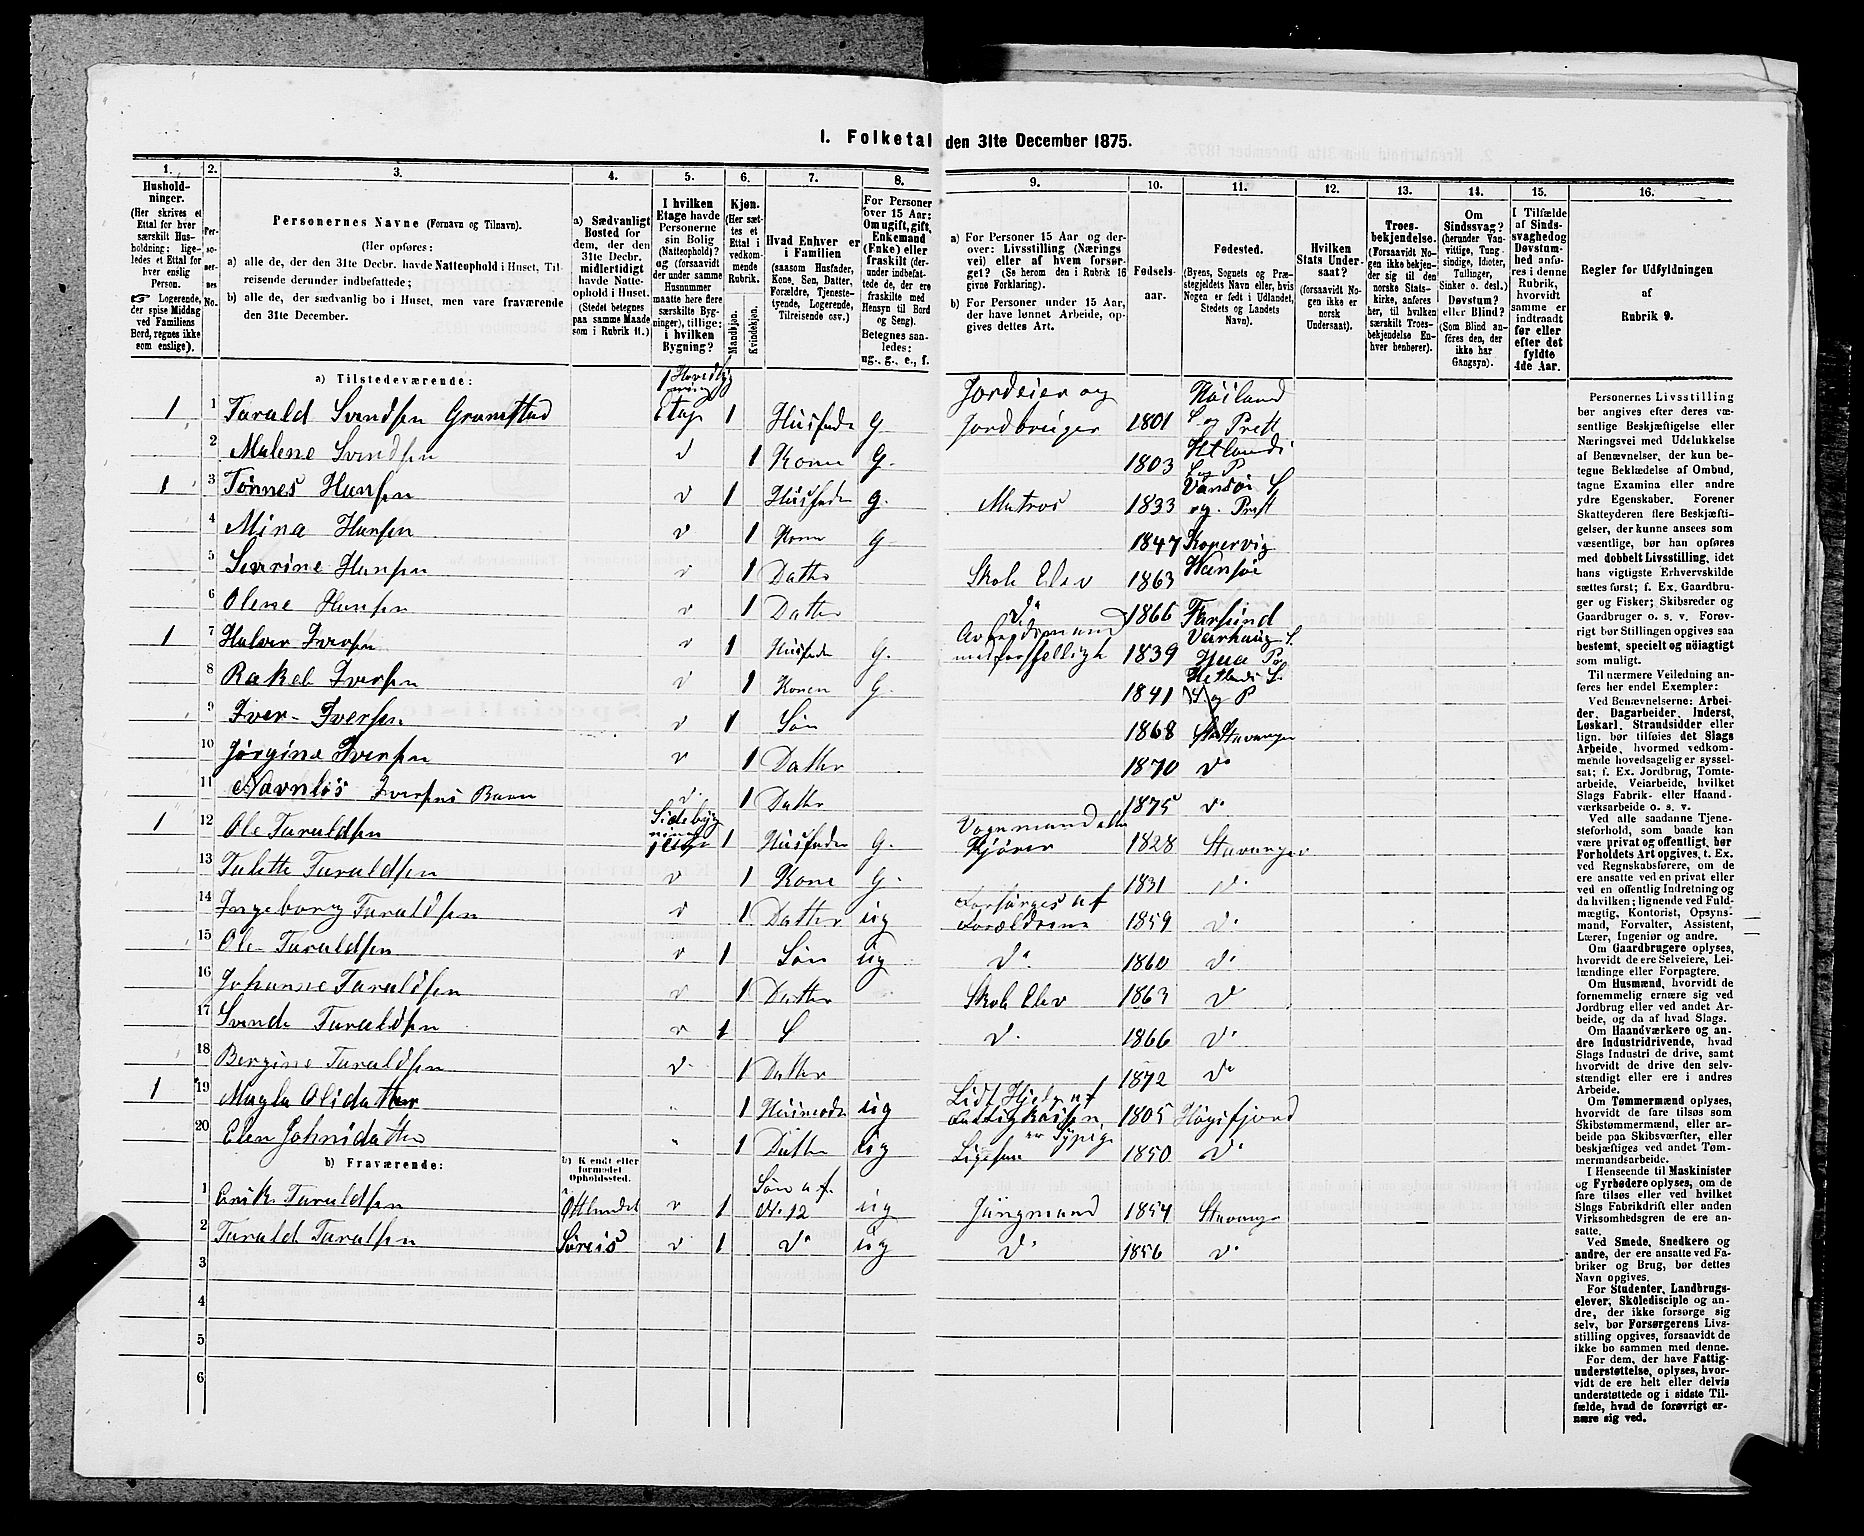 1. Folketal den 31te December 1875.
1. 2. 3. 4. 5. 6. 7. 8. 9. 10. 11. 12. 13. 14. 15. 16.
Hushold-
ninger.
(Her skrives et
Ettal for hver
særskilt Hus-
holdning; lige-
ledes et Ettal for
hver enslig
Person.
☞ Logerende,
der spise Middag
ved Familiens
Bord, regnes ikke
som enslige).
Per-
so-
ner-
nes
No.
Personernes Navne (Fornavn og Tilnavn).
(Her opføres:
a) alle de, der den 31te Decbr. havde Natteophold i Huset, Til-
reisende derunder indbefattede;
b) alle de, der sædvanlig bo i Huset, men vare fraværende
den 31te December.
a) Sædvanligt
Bosted for
dem, der den
31te Decbr.
midlertidigt
havde Natte-
ophold i Huset.
(Stedet betegnes
paa samme Maade
som i Rubrik 11.)
I hvilken
Etage havde
Personerne
sin Bolig
(Natteophold)?
og (forsaavidt
der under samme
Husnummer
maatte høre flere
særskilte Byg-
ninger), tillige:
i hvilken
Bygning?
Kjøn.
(Her sæt-
tes et
Ettal i
vedkom-
mende
Rubrik.
Mandkjøn.
Kvindekjøn.
Hvad Enhver er
i Familien
(saasom Husfader,
Kone, Søn, Datter,
Forældre, Tjeneste-
tyende, Logerende,
Tilreisende osv.)
For Personer
over 15 Aar:
Om ugift, gift,
Enkemand
(Enke) eller
fraskilt (der-
under indbefat-
tede de, der ere
fraskilte med
Hensyn til Bord
og Seng).
Betegnes saa-
ledes:
ug., g., e., f.
a) For Personer 15 Aar og der-
over: Livsstilling (Nærings-
vei) eller af hvem forsør-
get? (Se herom den i Rubrik 16
givne Forklaring).
b) For Personer under 15 Aar,
der have lønnet Arbeide, op-
gives dettes Art.
Fødsels-
aar.
Fødested.
(Byens, Sognets og Præ-
stegjeldets Navn eller, hvis
Nogen er født i Udlandet,
Stedets og Landets
Navn).
Hvilken
Stats Under-
saat?
(forsaavidt No-
gen ikke er
norsk
Undersaat).
Troes-
bekjendelse.
(Forsaavidt No-
gen ikke bekjen-
der sig til den
norske Stats-
kirke, anføres
her, til hvilken
særskilt Troes-
bekjendelse En-
hver henhører).
Om
Sindssvag?
(herunder Van-
vittige, Tung-
sindige, Idioter,
Tullinger,
Sinker o. desl.)
Døvstum?
eller Blind?
(Som Blind an-
føres den, der
ikke har
Gangsyn).
I Tilfælde
af Sinds-
svaghed og
Døvstum-
hed anfø-
res i denne
Rubrik,
hvorvidt
samme er
indtraadt
før eller
efter det
fyldte
4de Aar.
Regler for Udfyldningen
af
Rubrik 9.
a) Tilstedeværende:
1 1 Tarald Svendsen Gramstad 1 Etage 1 Husfader G Jordeier og Jordbruger 1801 Høiland S og Prstt
2 Malene Svendsen d 1 Kone G. 1803 Hetlands S og P
1 3 Tønnes Hansen d 1 Husfader G. Matros 1833 Vansøe S og Prstt
4 Mina Hansen d 1 Kone G 1847 Kopervig
5 Severine Hansen d 1 Datter Skole Elev 1863
6 Olene Hansen d 1 Datter do 1866 Farsund
1 7 Halvor Iversen d 1 Husfader G. Arbeidsmand med forskjelligt 1839 Varhaug S. Haa P
8 Rakel Iversen d 1 Konen G. 1841 Hetlands S. og P
9 Iver Iversen d 1 Søn 1868 Stavanger
10 Jørgine Iversen d 1 Datter 1870 do
11 Navnløs Iversens Barn d. 1 Datter 1875 do
1 12 Ole Taraldsen Sidebygning 1 Etage 1 Husfader G. Vognmand eller Kjører 1828 Stavanger
13 Talette Taraldsen d 1 Kone G. 1831 do
14 Ingeborg Taraldsen d 1 Datter ug Forsørges af Forældrene 1859 do
15 Ole Taraldsen d 1 Søn ug do 1860 do
16 Johanne Taraldsen d 1 Datter Skole Elev 1863 do
17 Svend Taraldsen d 1 S do 1866 do
18 Bergine Taraldsen d. 1 Datter 1872 do
1 19 Magla Olsdatter " 1 Husmoder ug Lidt Hjelp af Fattigkassen 1805 Høgsfjord
20 Elen Johnsdatter " 1 Datter ug 1850 do
b) Fraværende:
b) Kjendt eller
formodet
Opholdssted.
1 Erik Taraldsen d 1 Søn af No. 12 ug Jungmand 1854 Stavanger
2 Tarald Taralsen d 1 do ug do 1856 do
3
4
5
6
Personernes Livsstilling
bør angives efter deres væ-
sentlige Beskjæftigelse eller
Næringsvei med Udelukkelse
af Benævnelser, der kun be-
tegne Beklædelse af Ombud,
tagne Examina eller andre
ydre Egenskaber. Forener
Skatteyderen flere Beskjæfti-
gelser, der kunne ansees som
væsentlige, bør han opføres
med dobbelt Livsstilling, idet
hans vigtigste Erhvervskilde
sættes først; f. Ex. Gaardbru-
ger og Fisker; Skibsreder og
Gaardbruger o. s. v. Forøv-
rigt bør Stillingen opgives saa
bestemt, specielt og nøiagtigt
som muligt.
Til nærmere Veiledning an-
føres her endel Exempler:
Ved Benævnelserne: Arbei-
der, Dagarbeider, Inderst,
Løskarl, Strandsidder eller
lign. bør tilføies det Slags
Arbeide, hvormed vedkom-
mende hovedsagelig er syssel-
sat; f. Ex. Jordbrug, Tomte-
arbeide, Veiarbeide, hvilket
Slags Fabrik- eller Haand-
værksarbeide o. s. v.
Ved alle saadanne Tjene-
steforhold, som baade kan
være privat og offentligt, bør
Forholdets Art opgives, t. Ex.
ved Regnskabsførere, om de
ere ansatte ved en privat eller
ved en offentlig Indretning og
da hvilken; lignende ved Fuld-
mægtig, Kontorist, Opsyns-
mand, Forvalter, Assistent,
Lærer, Ingeniør og andre.
Om Gaardbrugere oplyses,
hvorvidt de ere Selveiere, Lei-
lændinge eller Forpagtere.
Om Husmænd, hvorvidt de
fornemmelig ernære sig ved
Jordbrug eller ved andet Ar-
beide, og da af hvad Slags.
Om Haandværkere og an-
dre Industridrivende, hvad
Slags Industri de drive, samt
hvorvidt de drive den selv-
stændigt eller ere i andres
Arbeide.
Om Tømmermænd oplyses,
hvorvidt de fare tilsøs som
Skibstømmermænd, eller ar-
beide paa Skibsværfter, eller
beskjæftiges ved andet Tøm-
mermandsarbeide.
I Henseende til Maskinister
og Fyrbødere oplyses, om de
fare tilsøs eller ved hvilket
Slags Fabrikdrift eller anden
Virksomhedsgren de ere an-
satte.
Ved Smede, Snedkere og
andre, der ere ansatte ved Fa-
briker og Brug, bør dettes
Navn opgives.
For Studenter, Landbrugs-
elever, Skoledisciple og an-
dre, der ikke forsørge sig
selv, bør Forsørgerens Livs-
stilling opgives, forsaavidt de
ikke bo sammen med denne.
For dem, der have Fattig-
understøttelse, oplyses, hvor-
vidt de ere helt eller delvis
understøttede og i sidste Til-
fælde, hvad de forøvrigt er-
nære sig ved.